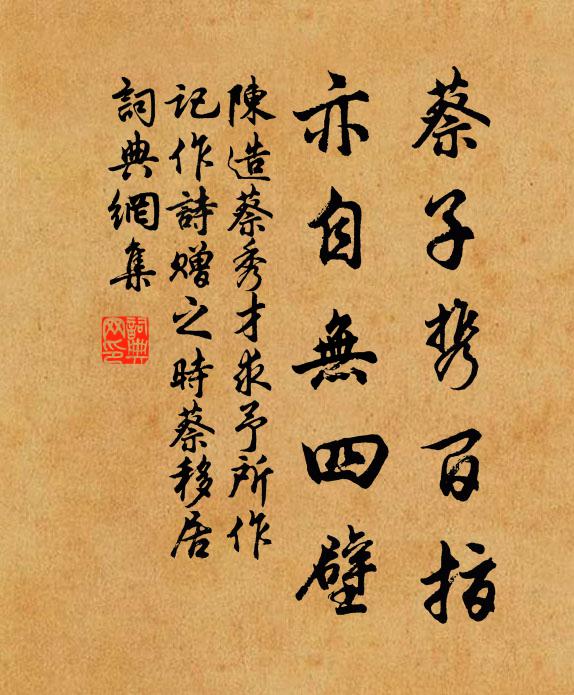 蔡子携百指
亦自無四壁
陳造蔡秀才求予所作
記作詩贈之時蔡移居
詞典網集
詞典网印